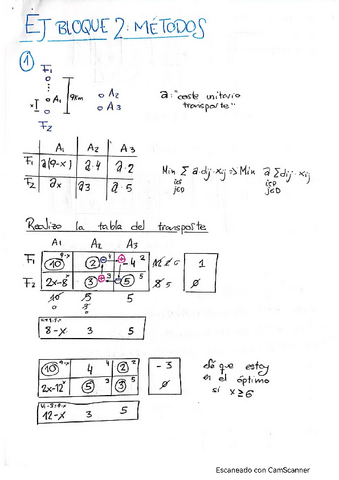 EJ BLOQUE 2: MÉTODOS
1
F1
A1 9km A2
x A3
F2
a: "coste unitario transporte"
A1 A2 A3
F1 a(9-x) a·4 a·2
F2 ax a3 a·5
Min Σ a·dij·xij => Min a Σ dij·xij
i∈S j∈D i∈S j∈D
Realizo la tabla del transporte
A1 A2 A3
F1 10 9-x 2 4 -4 2 1
F2 2x-8 x 3 3 5 5 8 5 0
10 5 5
8-x 3 5
10 9-x 4 4 2 2 -3
2x-12 x 5 3 3 5 0
12-x 3 5
que estoy en el óptimo si x≥6
Escaneado con CamScanner